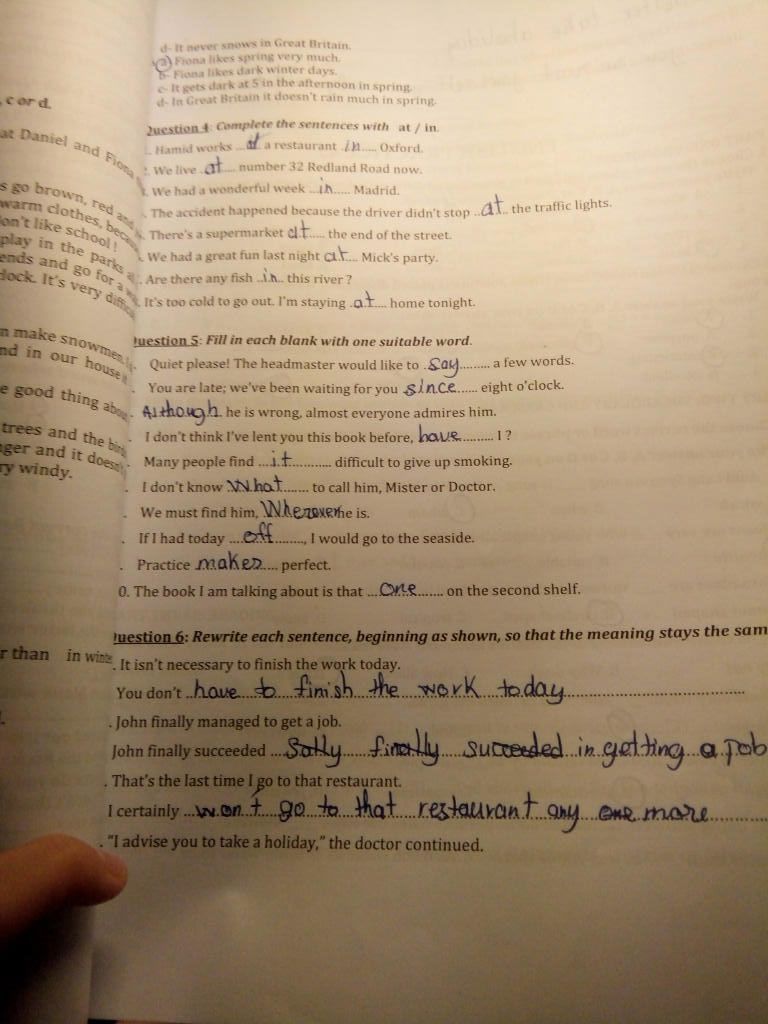 d- It never snows in Great Britain.
a- Fiona likes spring very much.
b- Fiona likes dark winter days.
c- It gets dark at 5 in the afternoon in spring.
d- In Great Britain it doesn't rain much in spring.
, c or d.
Question 4: Complete the sentences with at / in.
at Daniel and Fiona
. Hamid works ...at. a restaurant .in..... Oxford.
. We live .at.... number 32 Redland Road now.
s go brown, red and
. We had a wonderful week ...in..... Madrid.
warm clothes, because
. The accident happened because the driver didn't stop ..at.. the traffic lights.
on't like school!
. There's a supermarket at..... the end of the street.
play in the parks
. We had a great fun last night at.... Mick's party.
ends and go for a
. Are there any fish ..in.. this river ?
lock. It's very
. It's too cold to go out. I'm staying .at.... home tonight.
n make snowmen
Question 5: Fill in each blank with one suitable word.
nd in our house
. Quiet please! The headmaster would like to .say......... a few words.
. You are late; we've been waiting for you since...... eight o'clock.
e good thing about
. Although. he is wrong, almost everyone admires him.
trees and the
. I don't think I've lent you this book before, have......... I ?
ger and it doesn't
. Many people find ...it............ difficult to give up smoking.
ry windy.
. I don't know What....... to call him, Mister or Doctor.
. We must find him, Wherever he is.
. If I had today ....off........, I would go to the seaside.
. Practice makes.... perfect.
0. The book I am talking about is that ...one....... on the second shelf.
Question 6: Rewrite each sentence, beginning as shown, so that the meaning stays the sam
r than in winter
. It isn't necessary to finish the work today.
You don't ..have to finish the work today
. John finally managed to get a job.
John finally succeeded ... finally succeeded in getting a job
. That's the last time I go to that restaurant.
I certainly ...won't go to that restaurant any one more
. "I advise you to take a holiday," the doctor continued.